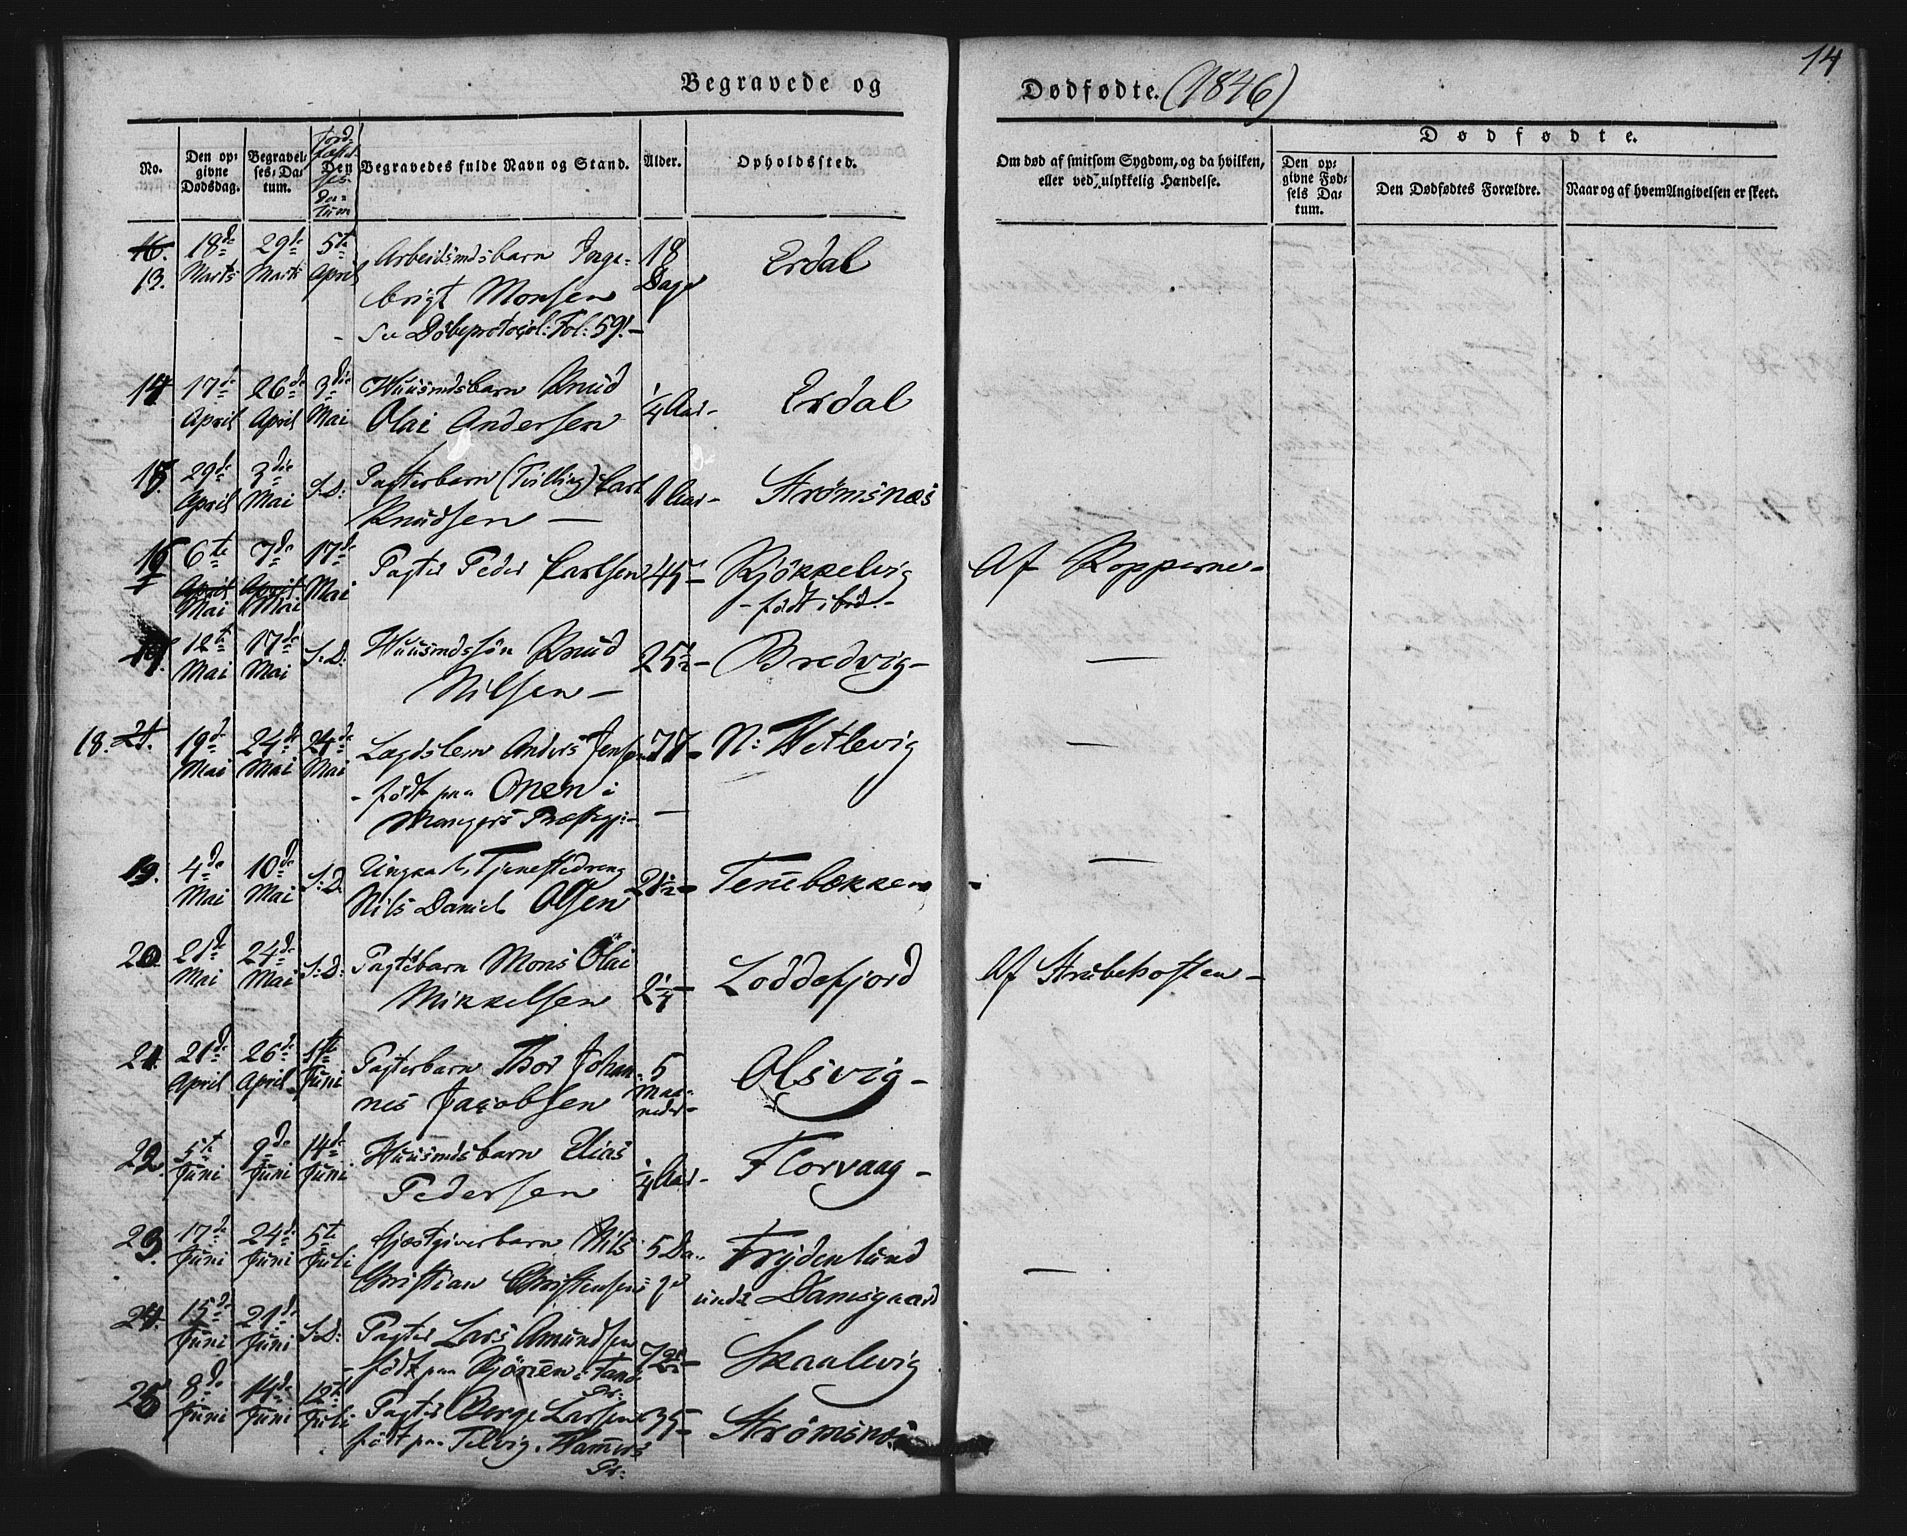 14
Begravede og Dødfødte. (1846)
No.
Den opgivne Dødsdag.
Begravelses-Datum.
Jordfæstelses-Datum
Begravedes fulde Navn og Stand.
Alder.
Opholdssted.
Om død af smitsom Sygdom, og da hvilken, eller ved ulykkelig Hændelse.
Dødfødte.
Den opgivne Fødsels Datum.
Den Dødfødtes Forældre.
Naar og af hvem Angivelsen er skeet.
16. 13. 18de Marts 29de Marts 5te April Arbeidsmdsbarn Inge- 18 Dage Erdal
brigt Monsen
- Se Døbeprotocol: Fol: 59. -
14 17de April 26de April 3die Mai Huusmdsbarn Knud 1/4 Aar - Erdal
Olai Andersen
15. 29de April 3die Mai S: D: Pagterbarn (Tvilling) Carl 1 Aar - Strømsnæs
Knudsen -
16 6te April Mai 7de April Mai 17de Mai Pagter Peder Carlsen 45 - Kjøkkelvig Af Kopperne -
- født ibid. -
17. 12te Mai 17de Mai S: D: Huusmdssøn Knud 25 1/2 - Bredvig - -
Nilsen -
18. 21. 19de Mai 24de Mai 24de Mai Lægdslem Anders Jensen 77 - N: Hetlevig -
- født paa Onen i
Mangers Præstegj: -
19. 4de Mai 10de Mai S: D. Ungkarl, Tjenestedreng 21 1/2 - Tennebækken - -
Nils Daniel Olsen
20. 21de Mai 24de Mai S: D: Pagterbarn Mons Olai 2 1/4 - Loddefjord Af Strubehosten -
Mikkelsen
21. 21de April 26de April 1ste Juni Pagterbarn Thor Johan- 5 Maaneder - Olsvig -
nes Jacobsen
22. 5te Juni 9de Juni 14de Juni Huusmdsbarn Elias 1/4 Aar - Florvaag -
Pedersen
23. 17de Juni 24de Juni 5te Juli Gjæstgiverbarn Nils 5 Dage Frydenlund -
Christian Christensen under Damsgaard
24. 15de Juni 21de Juni S: D: Pagter Lars Amundsen 72 Skaalevig
- født paa in Fane
Pr:
25 8de Juni 14de Juni 12te Juli Pagter Børge Larsen 35 - Strømsnæs
født paa Telvig, Hammers
Pr: